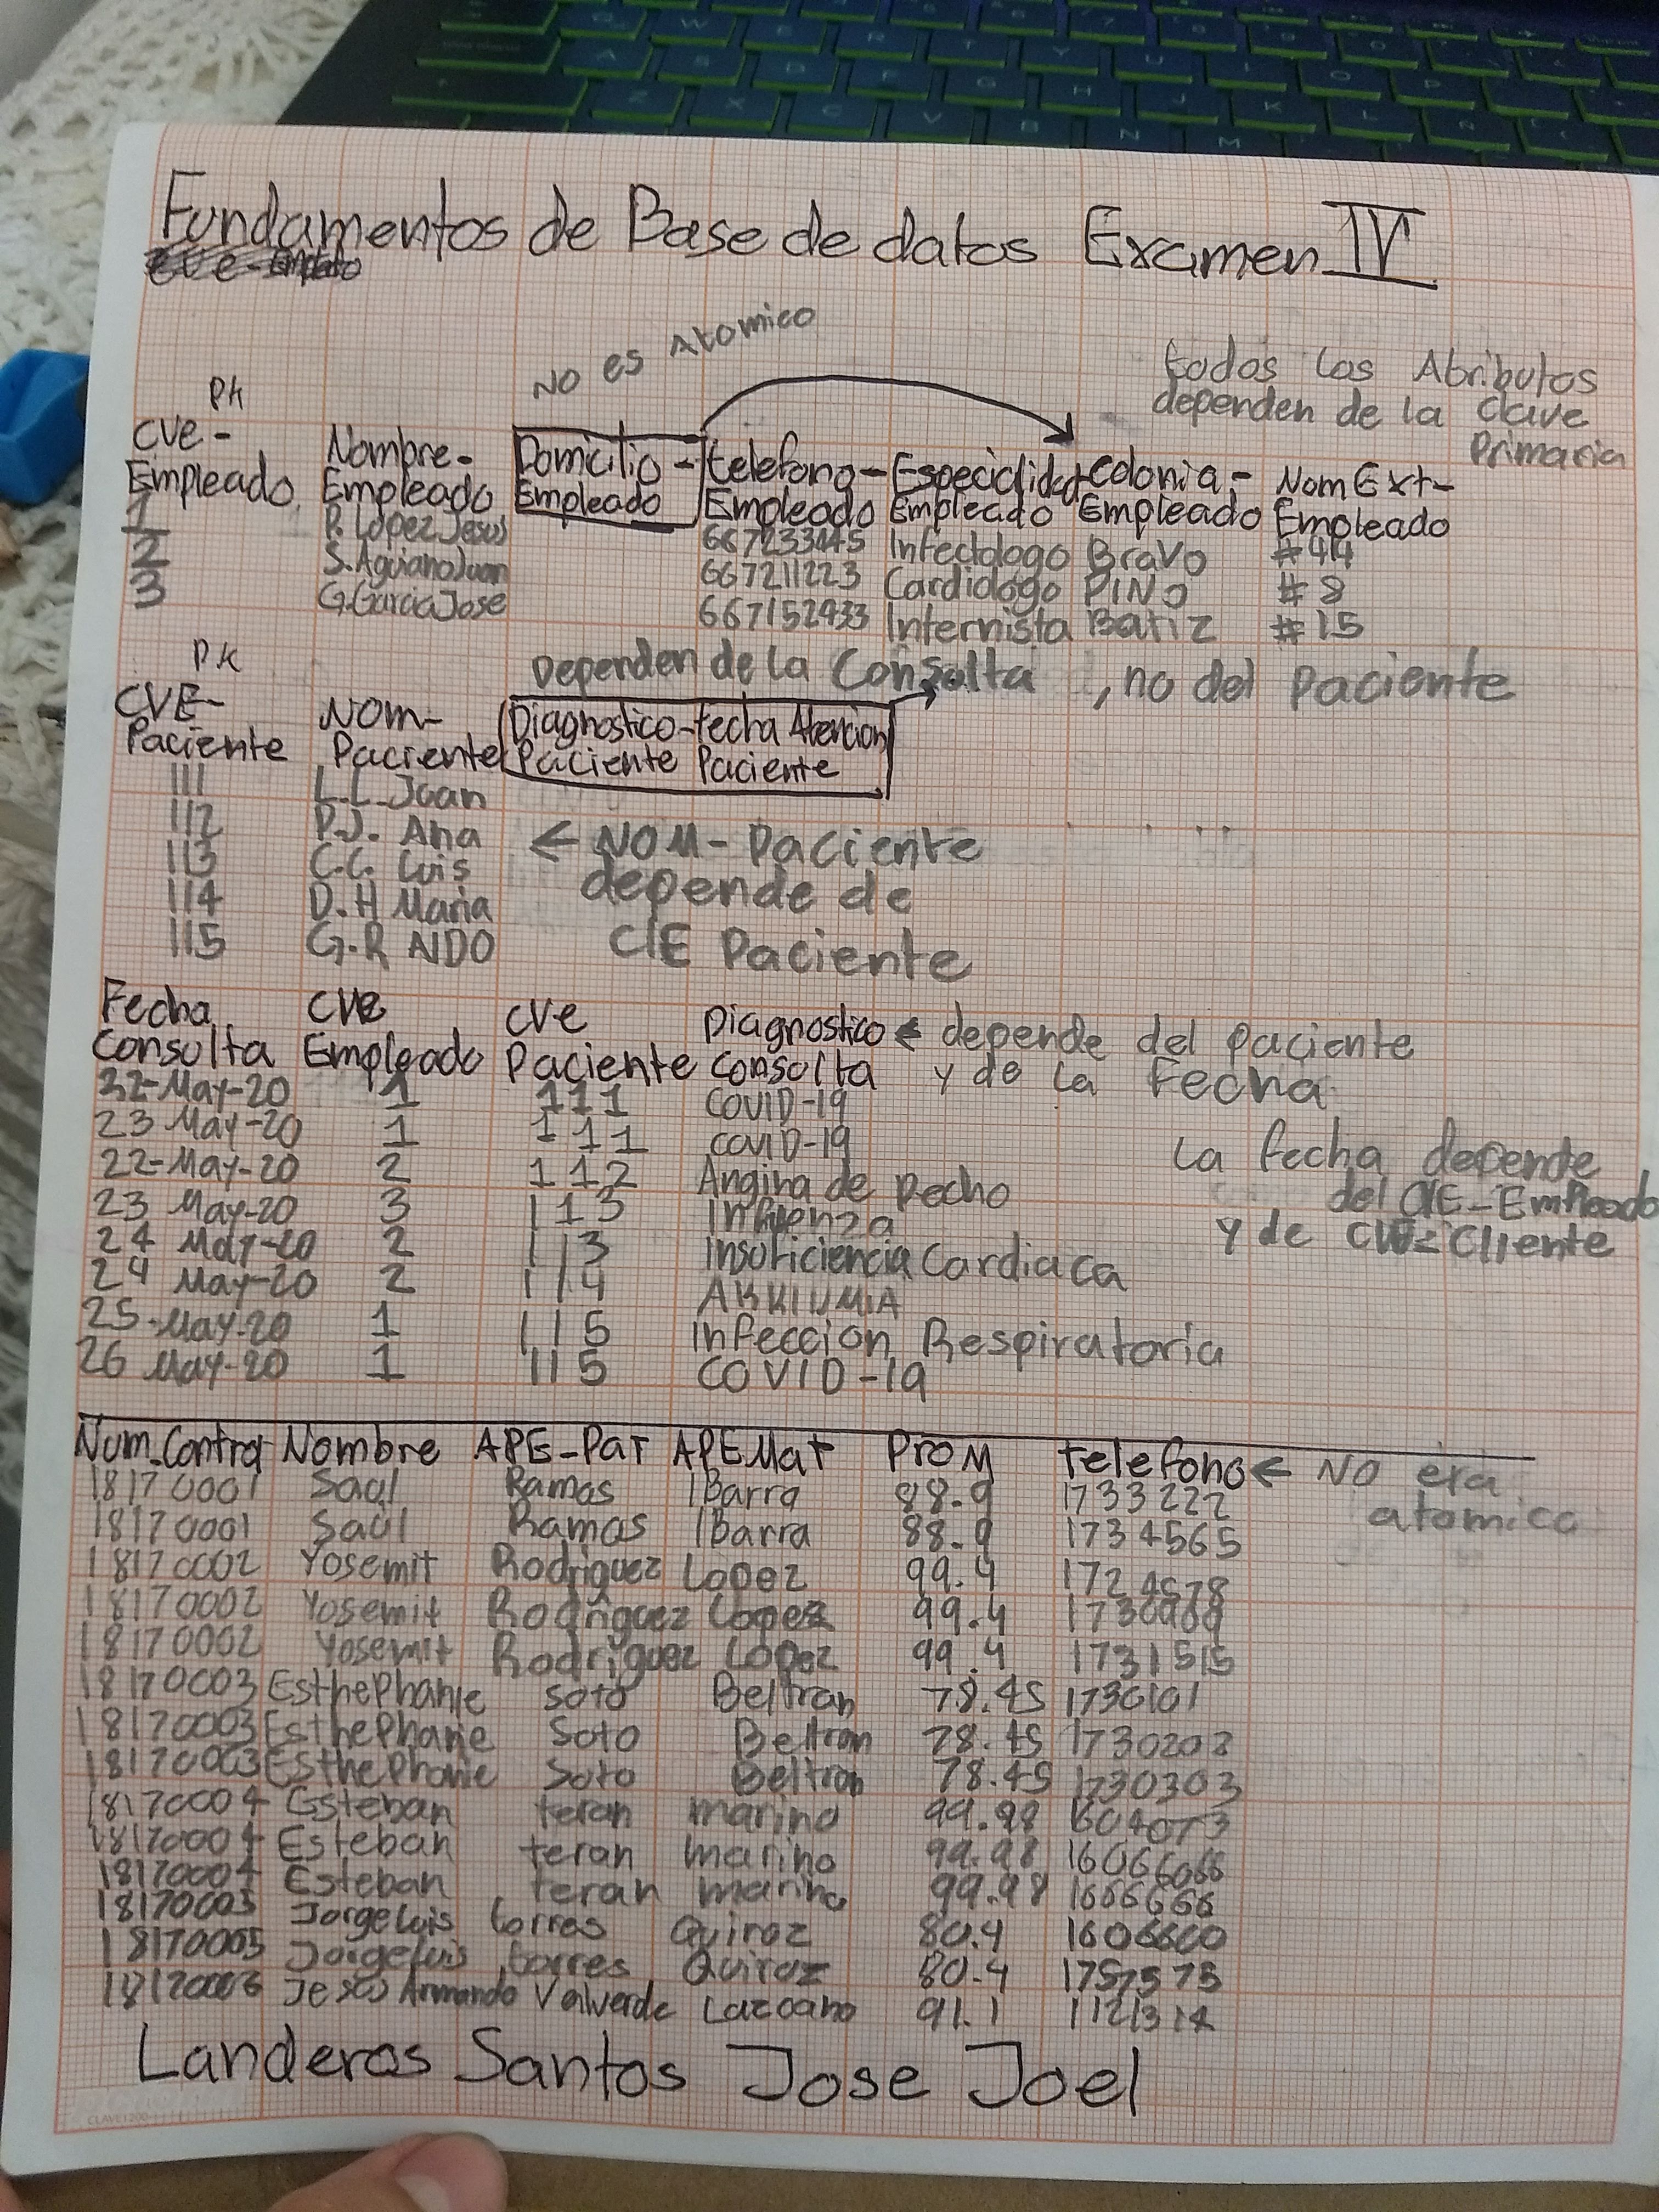 Fundamentos de Base de datos Examen IV
NO es Atomico
todos los Atributos
dependen de la clave
Primaria
PK
CVE-Empleado Nombre-Empleado Domicilio-Empleado telefono-Empleado Especialidad Empleado colonia-Empleado NomExt-Empleado
1 P. Lopez Jesus 667233445 Infectologo Bravo #44
2 S. Aguiano Juan 667211223 Cardiologo PINO #8
3 G. Garcia Jose 667152933 Internista Batiz #15
PK
Dependen de la Consulta, no del paciente
CVE-Paciente NOM-Paciente Diagnostico-Paciente fecha Atencion Paciente
111 L.L Juan
112 P.J. Ana
113 C.C. Luis
114 D.H Maria
115 G.R AlDO
← NOM-Paciente
depende de
CVE Paciente
Fecha Consulta CVE Empleado CVE Paciente Diagnostico Consulta ← depende del paciente
y de la Fecha
22-May-20 1 111 COVID-19
23 May-20 1 111 COVID-19
22-May-20 2 112 Angina de pecho
23 May-20 3 113 Influenza
24 May-20 2 113 Insuficiencia Cardiaca
24 May-20 2 114
25-May-20 1 115 Infeccion Respiratoria
26 May-20 1 115 COVID-19
La fecha depende
del CVE-Empleado
y de CVE-Cliente
Num_Control Nombre APE_Pat APEMat PROM telefono ← NO era
atomico
18170001 Saul Ramos IBarra 88.9 1733222
18170001 Saul Ramos IBarra 88.9 1734565
18170002 Yosemit Rodriguez Lopez 99.4 1724578
18170002 Yosemit Rodriguez Lopez 99.4
18170002 Yosemit Rodriguez Lopez 99.4 1731515
18170003 EsthePhanie Soto Beltran 78.45 1730101
18170003 EsthePhanie Soto Beltran 78.45 1730202
18170003 EsthePhanie Soto Beltran 78.45 1730303
18170004 Esteban teran marino 99.98
18170004 Esteban teran marino 99.98
18170004 Esteban teran marino 99.98 1666666
18170005 Jorgeluis torres Quiroz 80.4 1606600
18170005 Jorgeluis torres Quiroz 80.4 1757575
18170006 Jesus Armando Valverde Lazcano 91.1 1121314
Landeros Santos Jose Joel